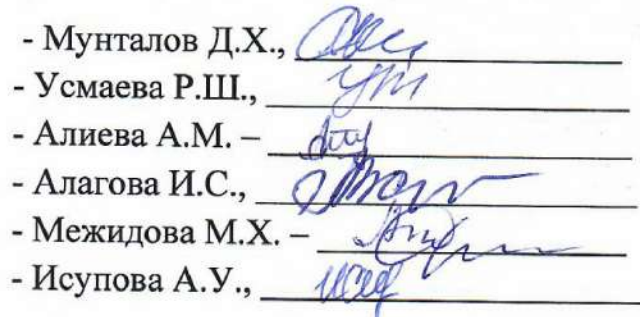 - Мунталов Д.Х.,
- Усмаева Р.Ш.,
- Алиева А.М. –
- Алагова И.С.,
- Межидова М.Х. –
- Исупова А.У.,